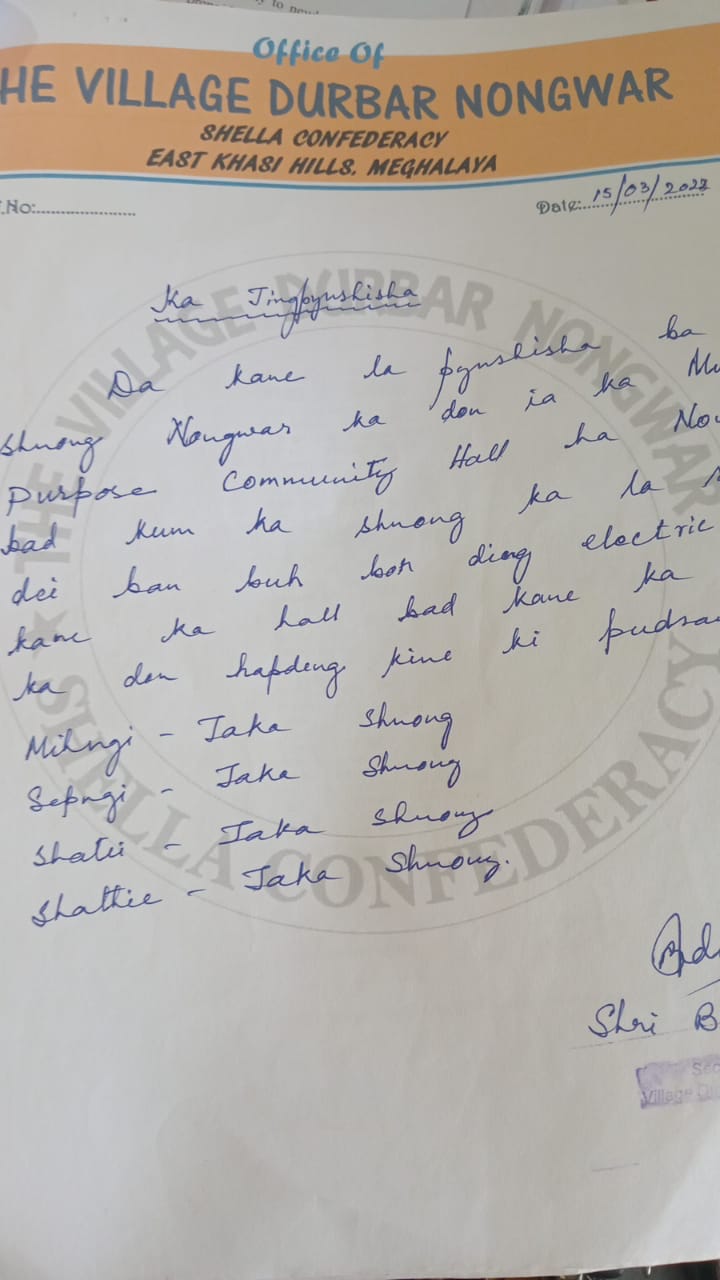 Office Of
HE VILLAGE DURBAR NONGWAR
SHELLA CONFEDERACY
EAST KHASI HILLS, MEGHALAYA
.No:
Date: 15/03/2022
Ka Jingpynshisha
Da kane la pynshisha ba
shnong Nongwar ka don ia ka Mu
Purpose Community Hall ha No
bad kum ka shnong ka la
dei ban buh bor ding electric
kane ka hall bad kane ka
ka don hapdeng kine ki pudsa
Mihngi - Jaka Shnong
Sepngi - Jaka Shnong
Shatei - Jaka Shnong
Shathie - Jaka Shnong.
Shri B
Sec
Village Du
THE VILLAGE DURBAR NONGWAR
★ SHELLA CONFEDERACY